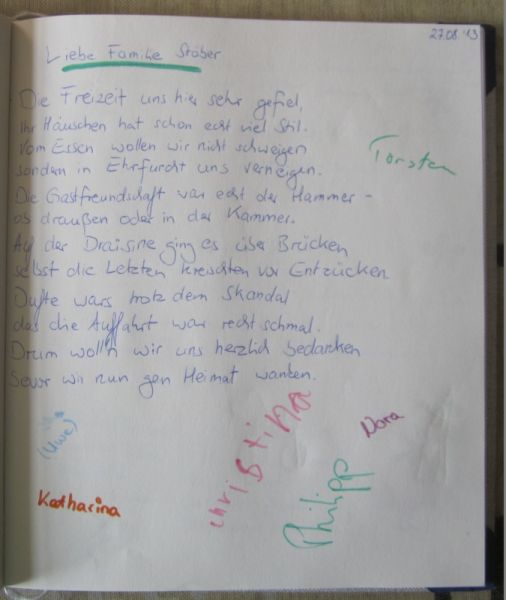 27.08.'13
Liebe Familie Stöber
Die Freizeit uns hier sehr gefiel,
Ihr Häuschen hat schon echt viel Stil.
Vom Essen wollen wir nicht schweigen
sondern in Ehrfurcht uns verneigen.
Torsten
Die Gastfreundschaft war echt der Hammer -
ob draußen oder in der Kammer.
Auf der Draisine ging es über Brücken
selbst die Letzten kreischten vor Entzücken
Dufte wars trotz dem Skandal
das die Auffahrt war recht schmal.
Drum woll'n wir uns herzlich bedanken
bevor wir nun gen Heimat wanken.
Christina
Nora
(Uwe)
Philipp
Katharina